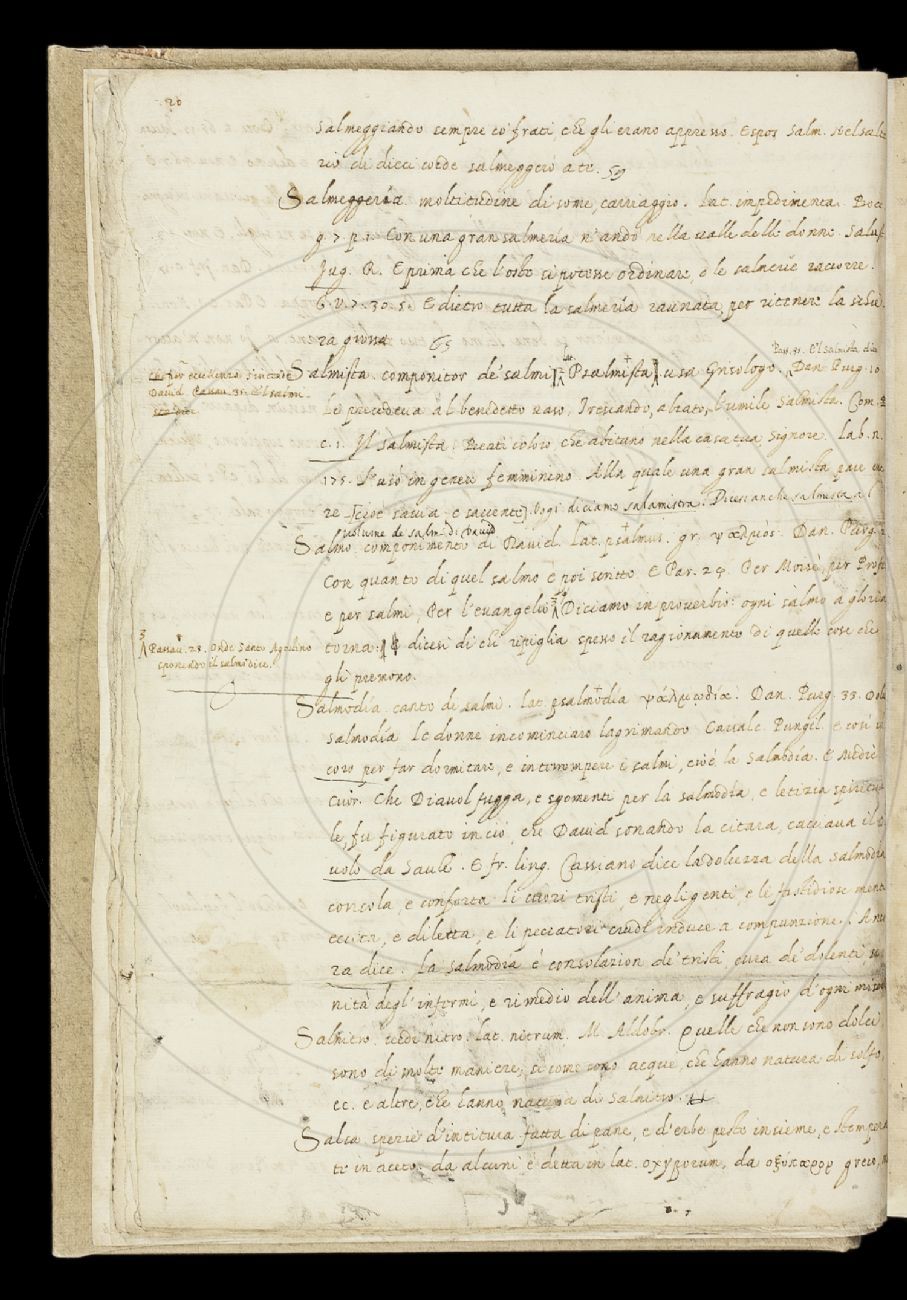 20
salmeggiando sempre co' frati, che gli erano appresso. Espos. Salm. Nel salte
rio di dieci corde salmeggerò a te.
Salmeggería moltitudine di some, carriaggio. Lat. impedimenta. Bocc.
g. 7. p. 1. Con una gran salmeria n'andò nella valle delle donne. Salus.
Jug. R. E prima che l'oste si potesse ordinare, o le salmerie raccorre.
G. V. 7. 30. 5. E dietro tutta la salmería raunata, per ritenere la
ra giunta
Pass. 31. E'l salmista dice
Salmista. componitor de' salmi Psalmista usa Grisologo. Dan. Purg. 10
che per eccellenza s'intende
David. Passau. 31. E'l salmi-
sta dice
Lì precedeva al benedetto vaso, Trescando, alzato, l'umile Salmista. Com.
c. 1. Il salmista: Beati coloro che abitano nella casa tua Signore. Lab. n.
175. L'usò in genere femminino. Alla quale una gran salmista pare
re [cioè saccia e saccente]. oggi diciamo salamistra. Dicesi anche salmista al
volume de' salmi di David
Salmo. componimento di David. Lat. psalmus. gr. ψαλμὸς. Dan. Purg.
Con quanto di quel salmo è poi scritto. E Par. 24. Per Moisè, per Profe
e per salmi, Per l'evangelio Diciamo in proverbio: ogni salmo a gloria
torna: dicesi di chi ripiglia spesso il ragionamento di quelle cose che
Passau. 28. Onde Santo Agostino
sponendo il salmo dice.
gli premono.
Salmodía. canto di salmi. Lat. psalmodia ψαλμῳδία. Dan. Purg. 33.
salmodía Le donne incominciaro lagrimando. Cavalc. Pungil. e così in
coro per far dormitare, e interrompere i salmi, cioè la Salmodía. E Medic.
Cuor. Che Diavol fugga, e sgomenti per la salmodía, e letizia spiritua
le, fu figurato in ciò, che David sonando la citara, cacciava il
volo da Saulle. E fr. ling. Cassiano dice la dolcezza della Salmodía
consola, e conforta li cuori tristi, e negligenti, e le fastidiose menti
eccita, e diletta, e li peccatori crudi induce a compunzione. Anco
ra dice: La salmodía è consolazion de' tristi, cura de' dolenti,
nità degl'infermi, e rimedio dell'anima, e suffragio d'ogni
Salnitro. vedi nitro. Lat. nitrum. M. Aldobr. Quelle che non sono dolci,
sono di molte maniere, sì come sono acque, che hanno natura di solfo,
ec. e altre, che hanno natura di Salnitro.
Salsa spezie d'intitura fatta di pane, e d'erbe peste insieme, e stempera
te in aceto. da alcuni è detta in lat. oxyporum, da ὀξύπορον greco,